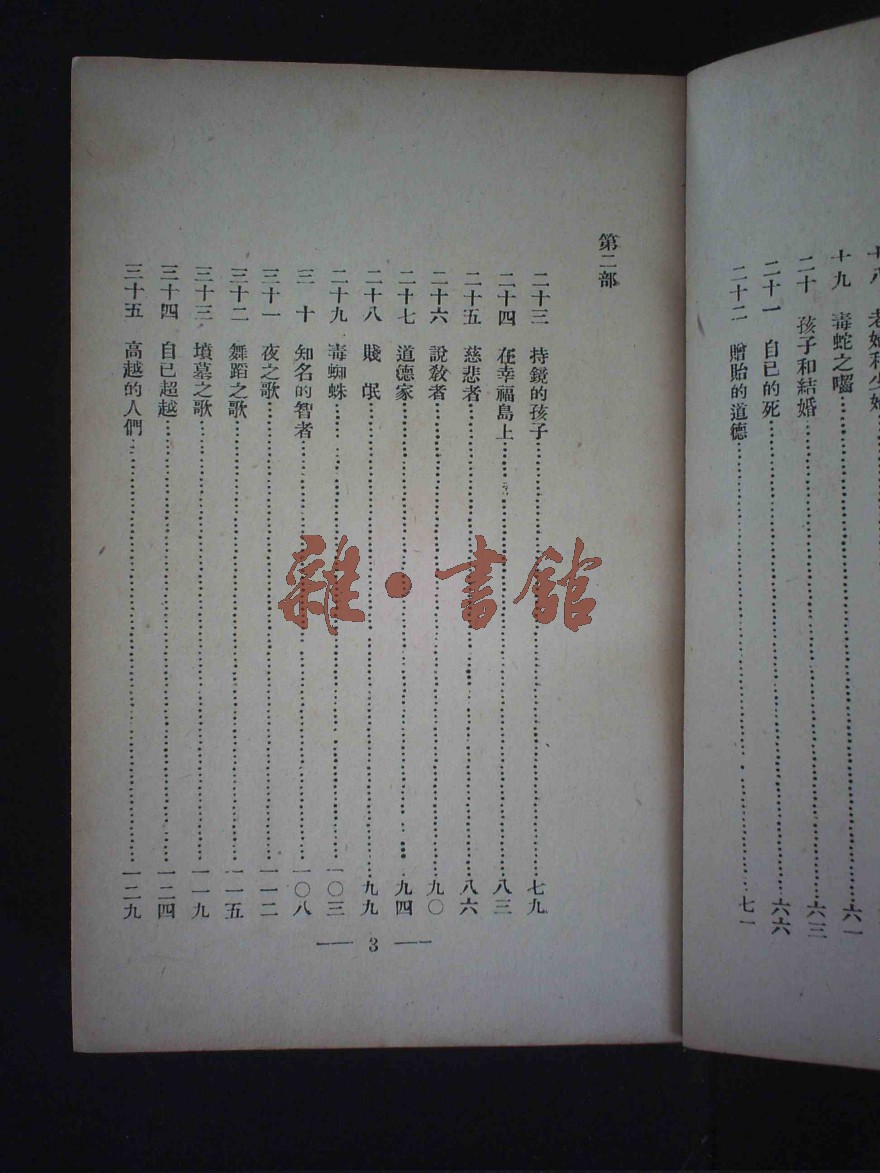 十八 老婦和少婦
十九 毒蛇之囓……六一
二十 孩子和結婚……六三
二十一 自己的死……六六
二十二 贈貽的道德……七一
第二部
二十三 持鏡的孩子……七九
二十四 在幸福島上……八三
二十五 慈悲者……八六
二十六 說敎者……九〇
二十七 道德家……九四
二十八 賤氓……九九
二十九 毒蜘蛛……一〇三
三十 知名的智者……一〇八
三十一 夜之歌……一一二
三十二 舞蹈之歌……一一五
三十三 墳墓之歌……一一九
三十四 自己超越……一二四
三十五 高越的人們……一二九
— 3 —
雜·書館